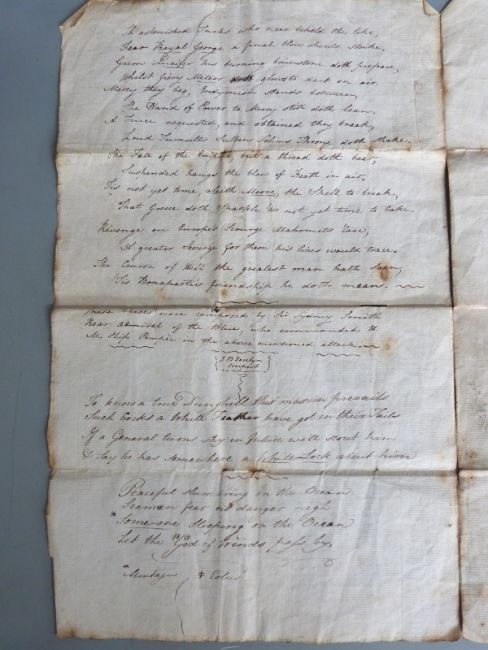 Th' astonished Turks who near beheld the like,
Fear Royal George a final blow should strike,
Grim Lucifer his burning brimstone doth prepare,
Whilst firey Meteor ghosts dart on air.
Mercy they beg, Endymion stands between,
The Hand of Power to Mercy still doth lean.
A Truce requested, and obtained they break,
Loud Tumults Sultan Selims Throne doth shake.
The Fall of the but a thread doth bee,
Suspended hangs the blow of Death in air.
Tis not yet time, saith Moore, the Shell to break,
That Greece doth sparkle 'tis not yet time to take.
Revenge, on Europe's Scourge Mahomets Race,
A greater Scourge for them his lines would trace.
The Course of Hell the greatest man hath seen,
'Tis Bonaparte's friendship he doth means.
These verses were composed by Sir Sydney Smith
Rear admiral of the Blue, who commanded
M. Ship Pompée in the above mentioned attack.
J B Jocelyn
To know a true Dunghill this maxim prevails
Such Cocks a White Feather have got in their Tails
If a General turns shy in future we'll scout him
& Say he has somewhere a White Lock about him
Peaceful slumbering on the Ocean
Seamen fear no danger nigh
*Someone sleeping on the Ocean
Let the God of Winds pass by.